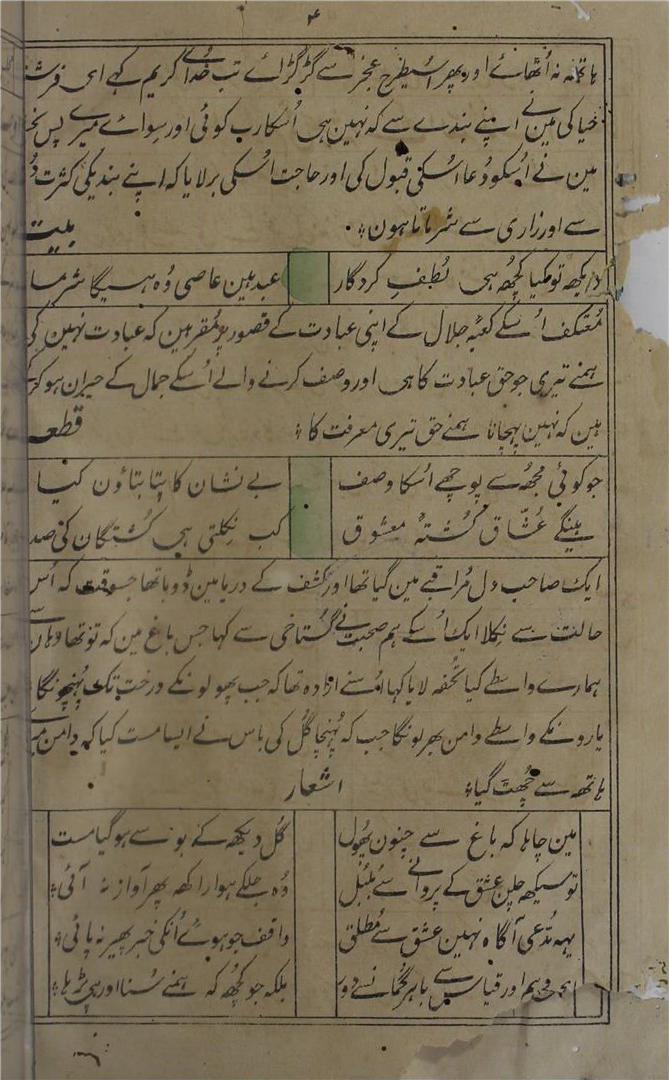 ۴
ہاتھہ نہ اُٹھائے اور پھر اسیطرح عجز سے گڑگڑاے تب خداے کریم کہے ای
حیا کی مین نے اپنے بندے سے کہ نہین ہی اُسکا رب کوئی اور سواے میرے پس
مین نے اُسکو دعا اُسکی قبول کی اور حاجت اُسکی بر لایا کہ اپنے بندیکی کثرت
سے اور زاری سے شرماتا ہون؞
بیت
دیکھہ تو کیا کچھہ ہی لطفِ کردگار
عبد ہین عاصی وُہ ہیگا شرمسا
مُعتکف اُسکے کعبۂ جلال کے اپنی عبادت کے قصور پر مُقر ہین کہ عبادت نہین کی
ہمنے تیری جو حق عبادت کا ہی اور وصف کرنے والے اُسکے جمال کے حیران ہو کر
ہین کہ نہین پہچانا ہمنے حق تیری معرفت کا؞
قطعہ
جو کوئی مجھُ سے پوچھے اُسکا وصف
بے نشان کا پتا بتاؤن کیا
ہینگے عُشّاق کُشتۂ معشوق
کب نکلتی ہی کُشتگان کی صد
ایک صاحب دل مُراقبے مین گیا تھا اور کشف کے دریا مین ڈوبا تھا جسوقت کہ اُس
حالت سے نکلا ایک اُسکے ہم صحبت نے گستاخی سے کہا جس باغ مین کہ تو تھا وہان سے
ہمارے واسطے کیا تحفہ لایا کہا اُسنے ارادہ تھا کہ جب پھولونکے درخت تک پُہنچونگا
یارونکے واسطے دامن بھر لونگا جب کہ پُہنچا گُل کی باس نے ایسا مست کیا کہ دامن میرے
ہاتھہ سے چُھٹ گیا؞
اشعار
مین چاہا کہ باغ سے چنون پھول
گُل دیکھہ کے بو سے ہو گیا مست
تو سیکھہ چلن عشق کے پروانے سے بُلبُل
وُہ جلکے ہوا راکھہ پھر آواز نہ آئی؞
یہہ مُدّعی آگاہ نہین عشق سے مُطلق
واقف جو ہوے اُنکی خبر پھیر نہ پائی؞
ای وہم اور قیاس سے باہر گمانسے دور
بلکہ جو کچھُ کہ ہمنے سُنا اور ہی پڑہا؞